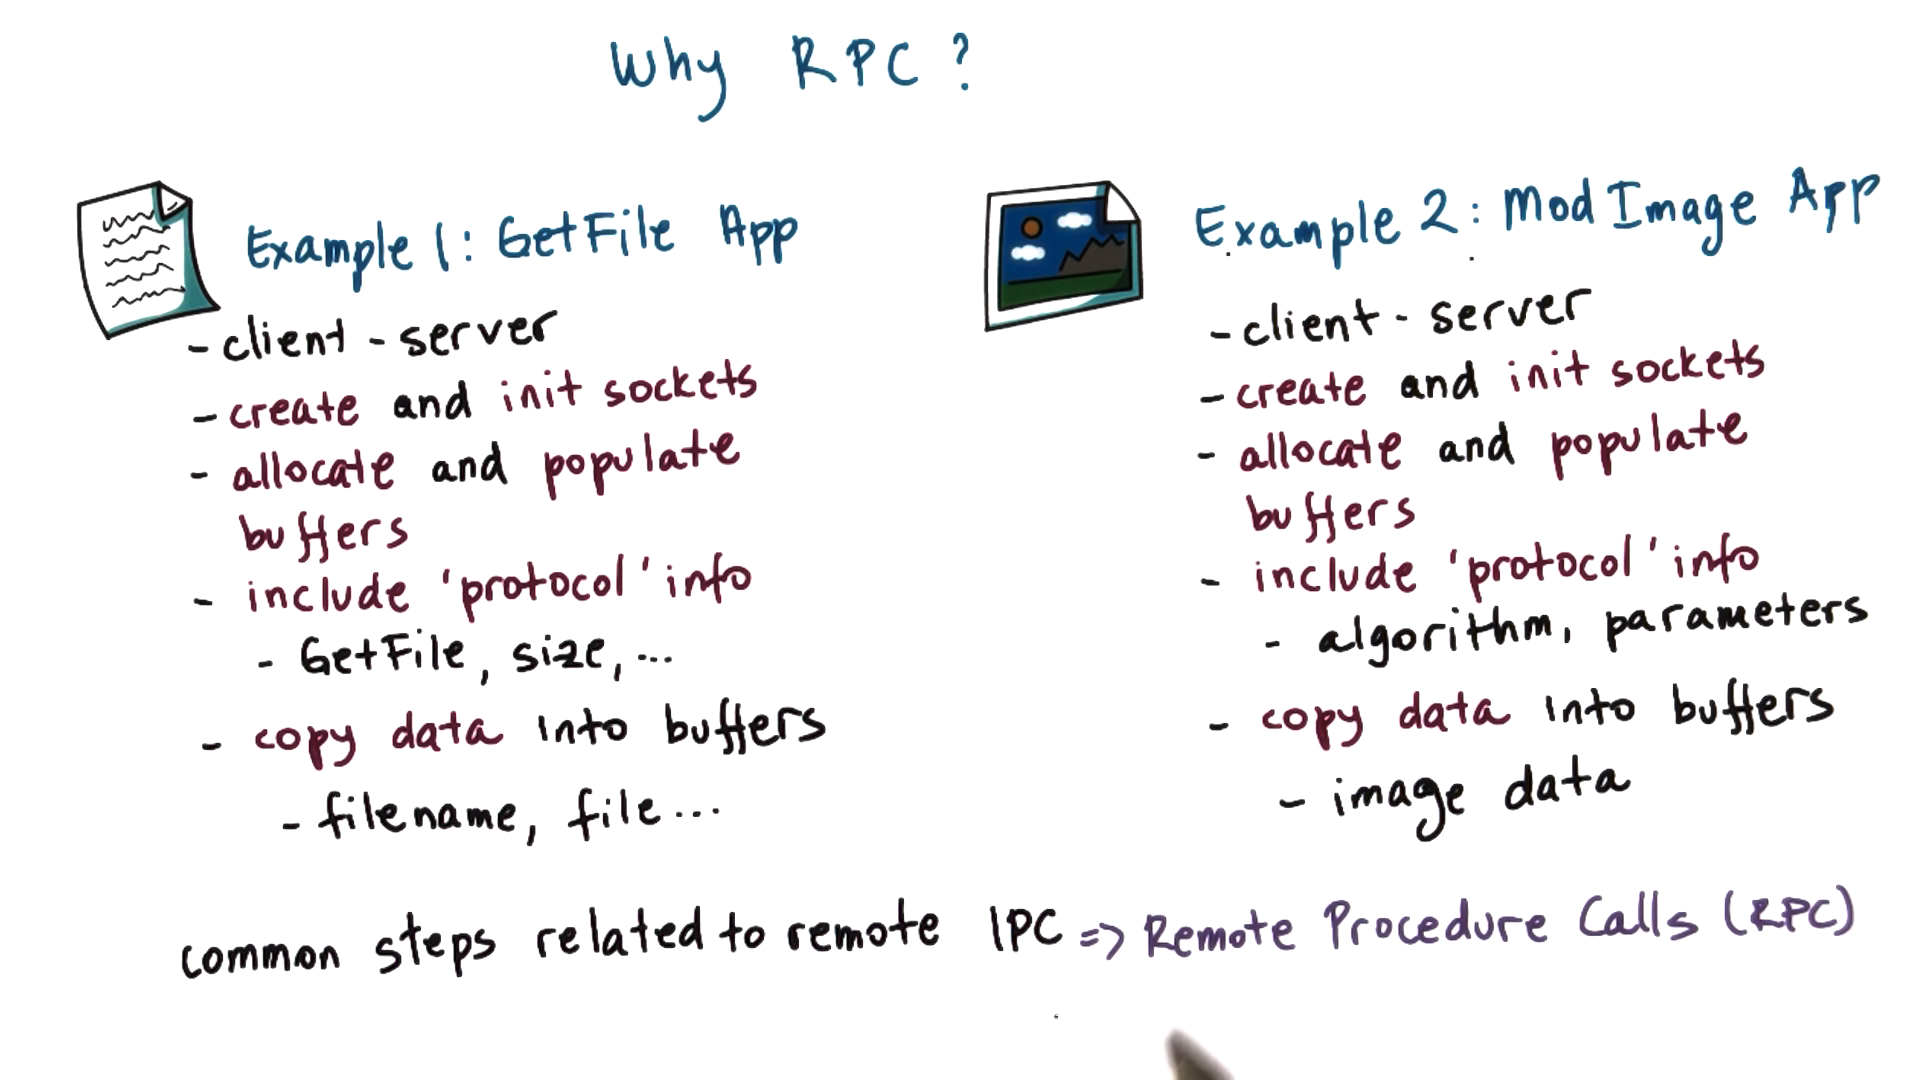 Why RPC?
Example 1: GetFile App
- client - server
- create and init sockets
- allocate and populate
buffers
- include 'protocol' info
- GetFile, size, ...
- copy data into buffers
- filename, file...
Example 2: Mod Image App
- client - server
- create and init sockets
- allocate and populate
buffers
- include 'protocol' info
- algorithm, parameters
- copy data into buffers
- image data
common steps related to remote IPC => Remote Procedure Calls (RPC)